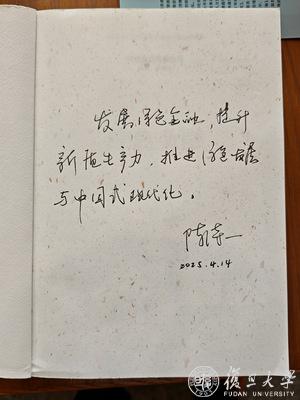 发展绿色金融，提升
新质生产力，推进绿色发展
与中国式现代化。
陈诗一
2025.4.14
復旦大學
FUDAN UNIVERSITY